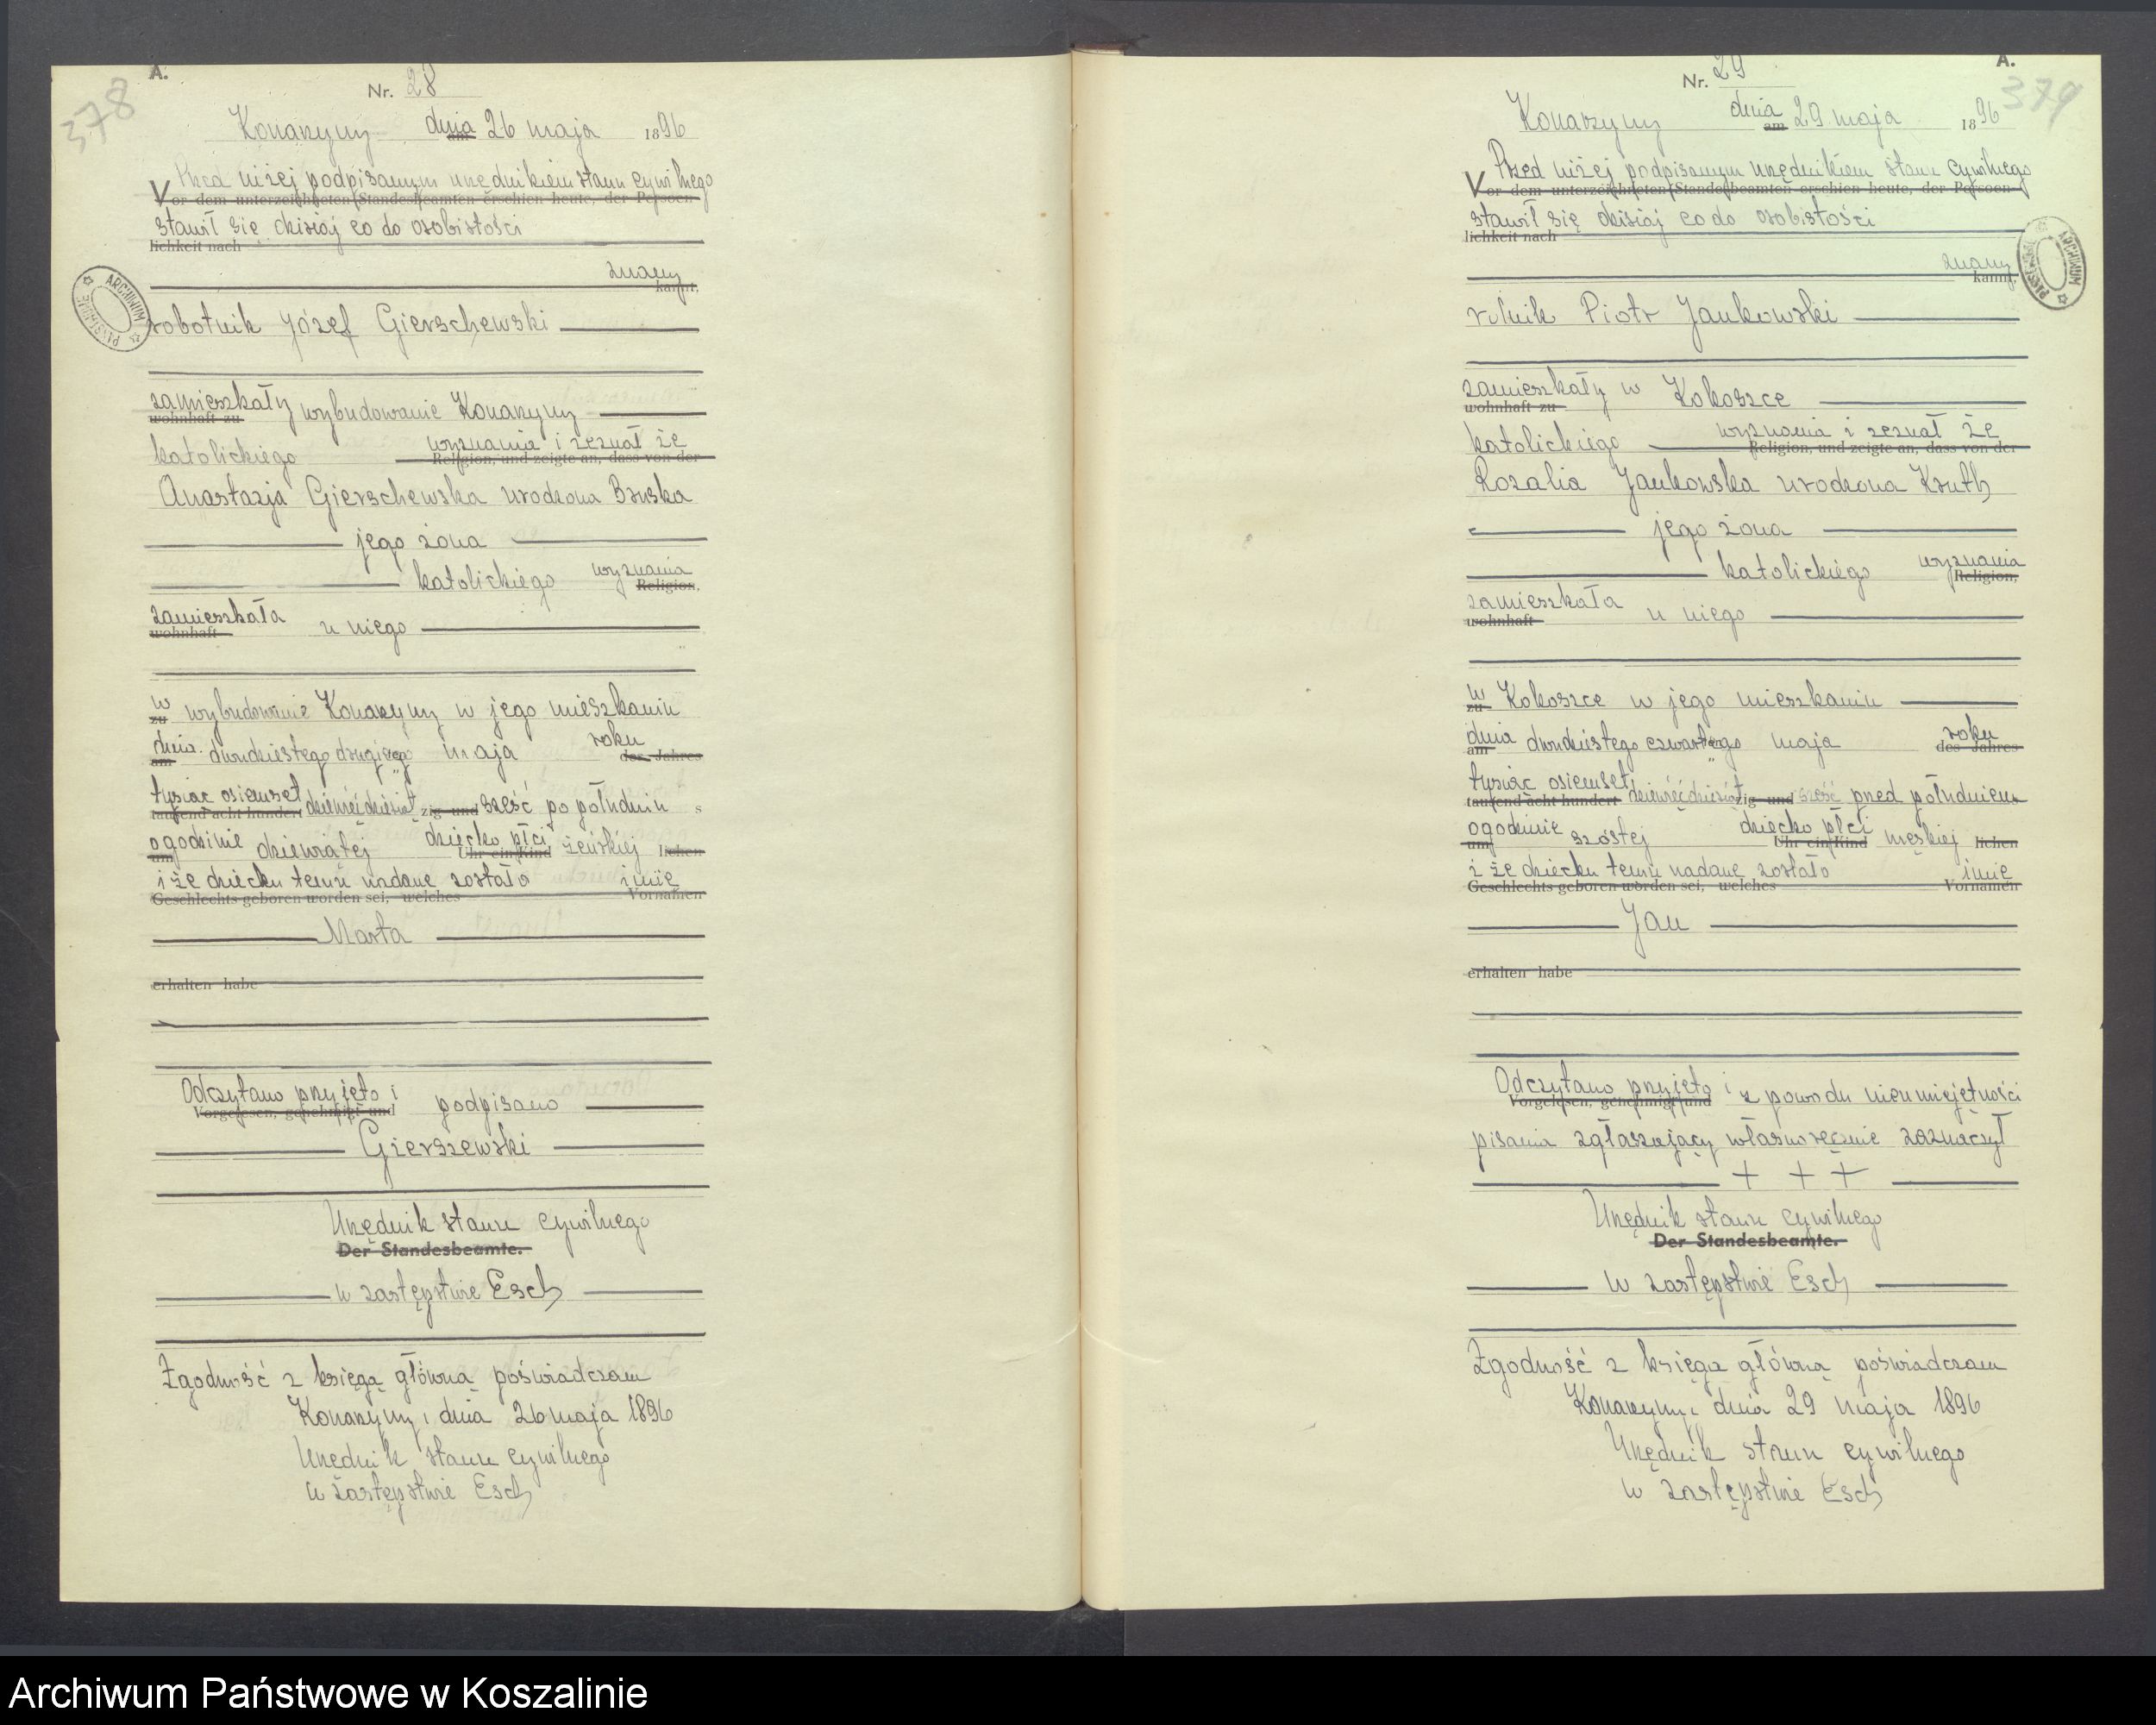 A.
378
Nr. 28
Konarzyny dnia am 26 maja 1896
Przed niżej podpisanym urzędnikiem stanu cywilnego
Vor dem unterzeichneten Standesbeamten erschien heute, der Persoen-
stawił się dzisiaj co do osobistości
lichkeit nach
znany
kannt,
robotnik Józef Gierschewski
zamieszkały wybudowanie Konarzyny
wohnhaft zu
katolickiego wyznania i zeznał że
Religion, und zeigte an, dass von der
Anastazja Gierschewska urodzona Bruska
jego żona
katolickiego wyznania
Religion,
zamieszkała u niego
wohnhaft
w wybudowanie Konarzyny w jego mieszkaniu
zu
dnia dwudziestego drugiego maja roku
am des Jahres
tysiąc osiemset dziewięćdziesiąt sześć po południu s
tausend acht hundert zig und
o godzinie dziewiątej dziecko płci żeńskiej
um Uhr ein Kind lichen
i że dziecku temu nadane zostało imię
Geschlechts geboren worden sei, welches Vornamen
Marta
erhalten habe
Odczytano przyjęto i podpisano
Vorgelesen, genehmigt und
Gierszewski
Urzędnik stanu cywilnego
Der Standesbeamte.
w zastępstwie Esch
Zgodność z księgą główną poświadczam
Konarzyny, dnia 26 maja 1896
Urzędnik stanu cywilnego
w zastępstwie Esch
ARCHIWUM PAŃSTWOWE
A.
379
Nr. 29
Konarzyny dnia am 29 maja 1896
Przed niżej podpisanym urzędnikiem stanu cywilnego
Vor dem unterzeichneten Standesbeamten erschien heute, der Persoen-
stawił się dzisiaj co do osobistości
lichkeit nach
znany
kannt,
rolnik Piotr Jankowski
zamieszkały w Kokoszce
wohnhaft zu
katolickiego wyznania i zeznał że
Religion, und zeigte an, dass von der
Rozalia Jankowska urodzona Kruth
jego żona
katolickiego wyznania
Religion,
zamieszkała u niego
wohnhaft
w Kokoszce w jego mieszkaniu
zu
dnia dwudziestego czwartego maja roku
am des Jahres
tysiąc osiemset dziewięćdziesiąt sześć przed południem
tausend acht hundert zig und
o godzinie szóstej dziecko płci męskiej
um Uhr ein Kind lichen
i że dziecku temu nadane zostało imię
Geschlechts geboren worden sei, welches Vornamen
Jan
erhalten habe
Odczytano przyjęto i z powodu nieumiejętności
Vorgelesen, genehmigt und
pisania zgłaszający własnoręcznie zaznaczył
+ + +
Urzędnik stanu cywilnego
Der Standesbeamte.
w zastępstwie Esch
Zgodność z księgą główną poświadczam
Konarzyny, dnia 29 maja 1896
Urzędnik stanu cywilnego
w zastępstwie Esch
ARCHIWUM PAŃSTWOWE
Archiwum Państwowe w Koszalinie